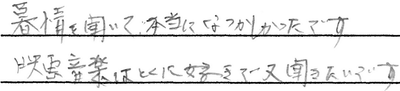 暮情を聞いて本当になつかしかったです
映画音楽はとくに好きで又聞きたいです